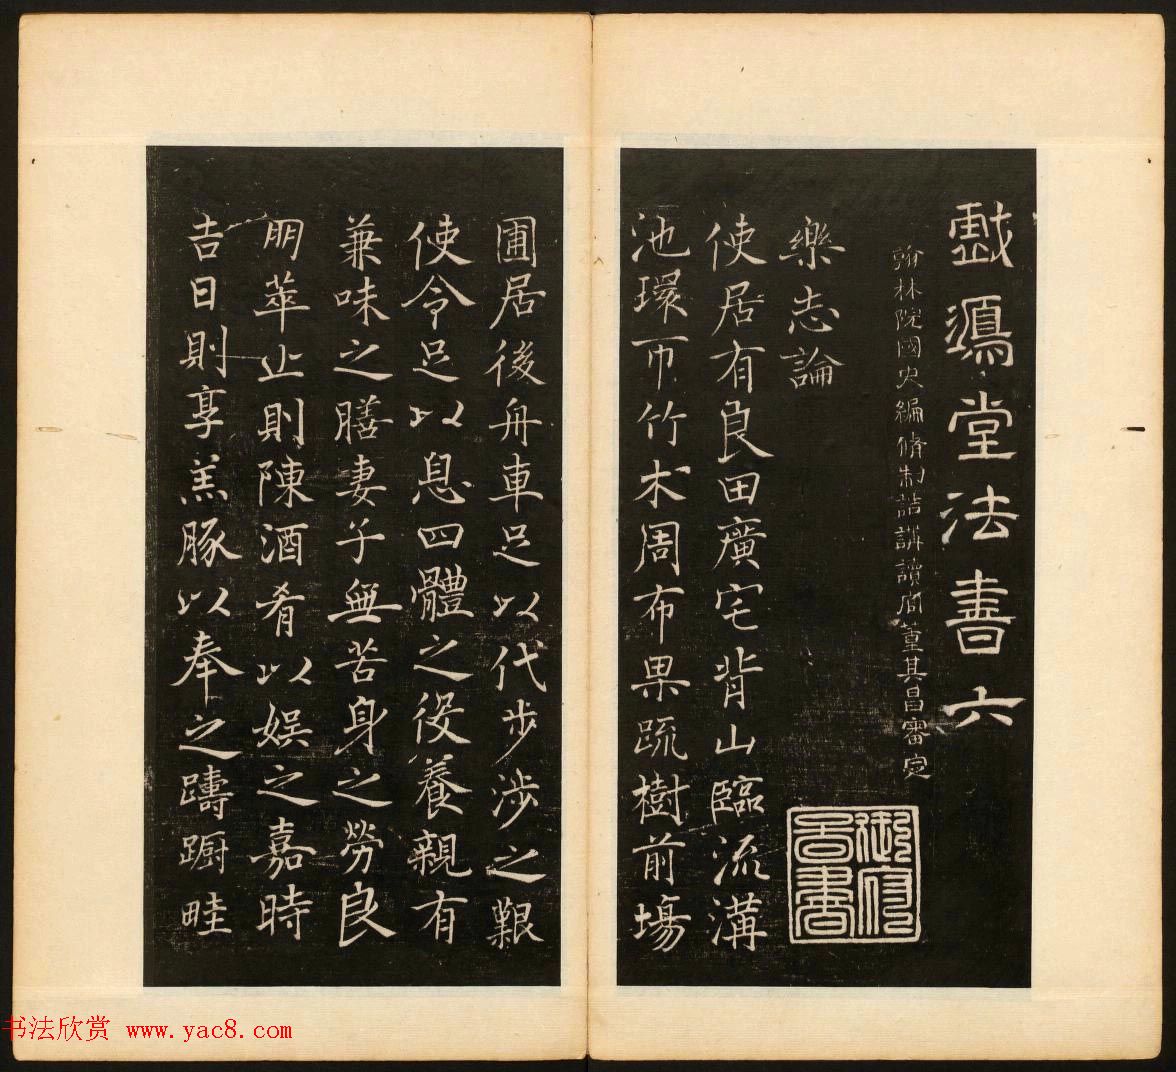 戲鴻堂法書六
翰林院國史編脩制誥講讀官董其昌審定
樂志論
使居有良田廣宅背山臨流溝
池環帀竹木周布果疏樹前場
御府圖書
圃居後舟車足以代步涉之艱
使令足以息四體之役養親有
兼味之膳妻子無苦身之勞良
朋萃止則陳酒肴以娛之嘉時
吉日則享羔豚以奉之躊躕畦
书法欣赏 www.yac8.com